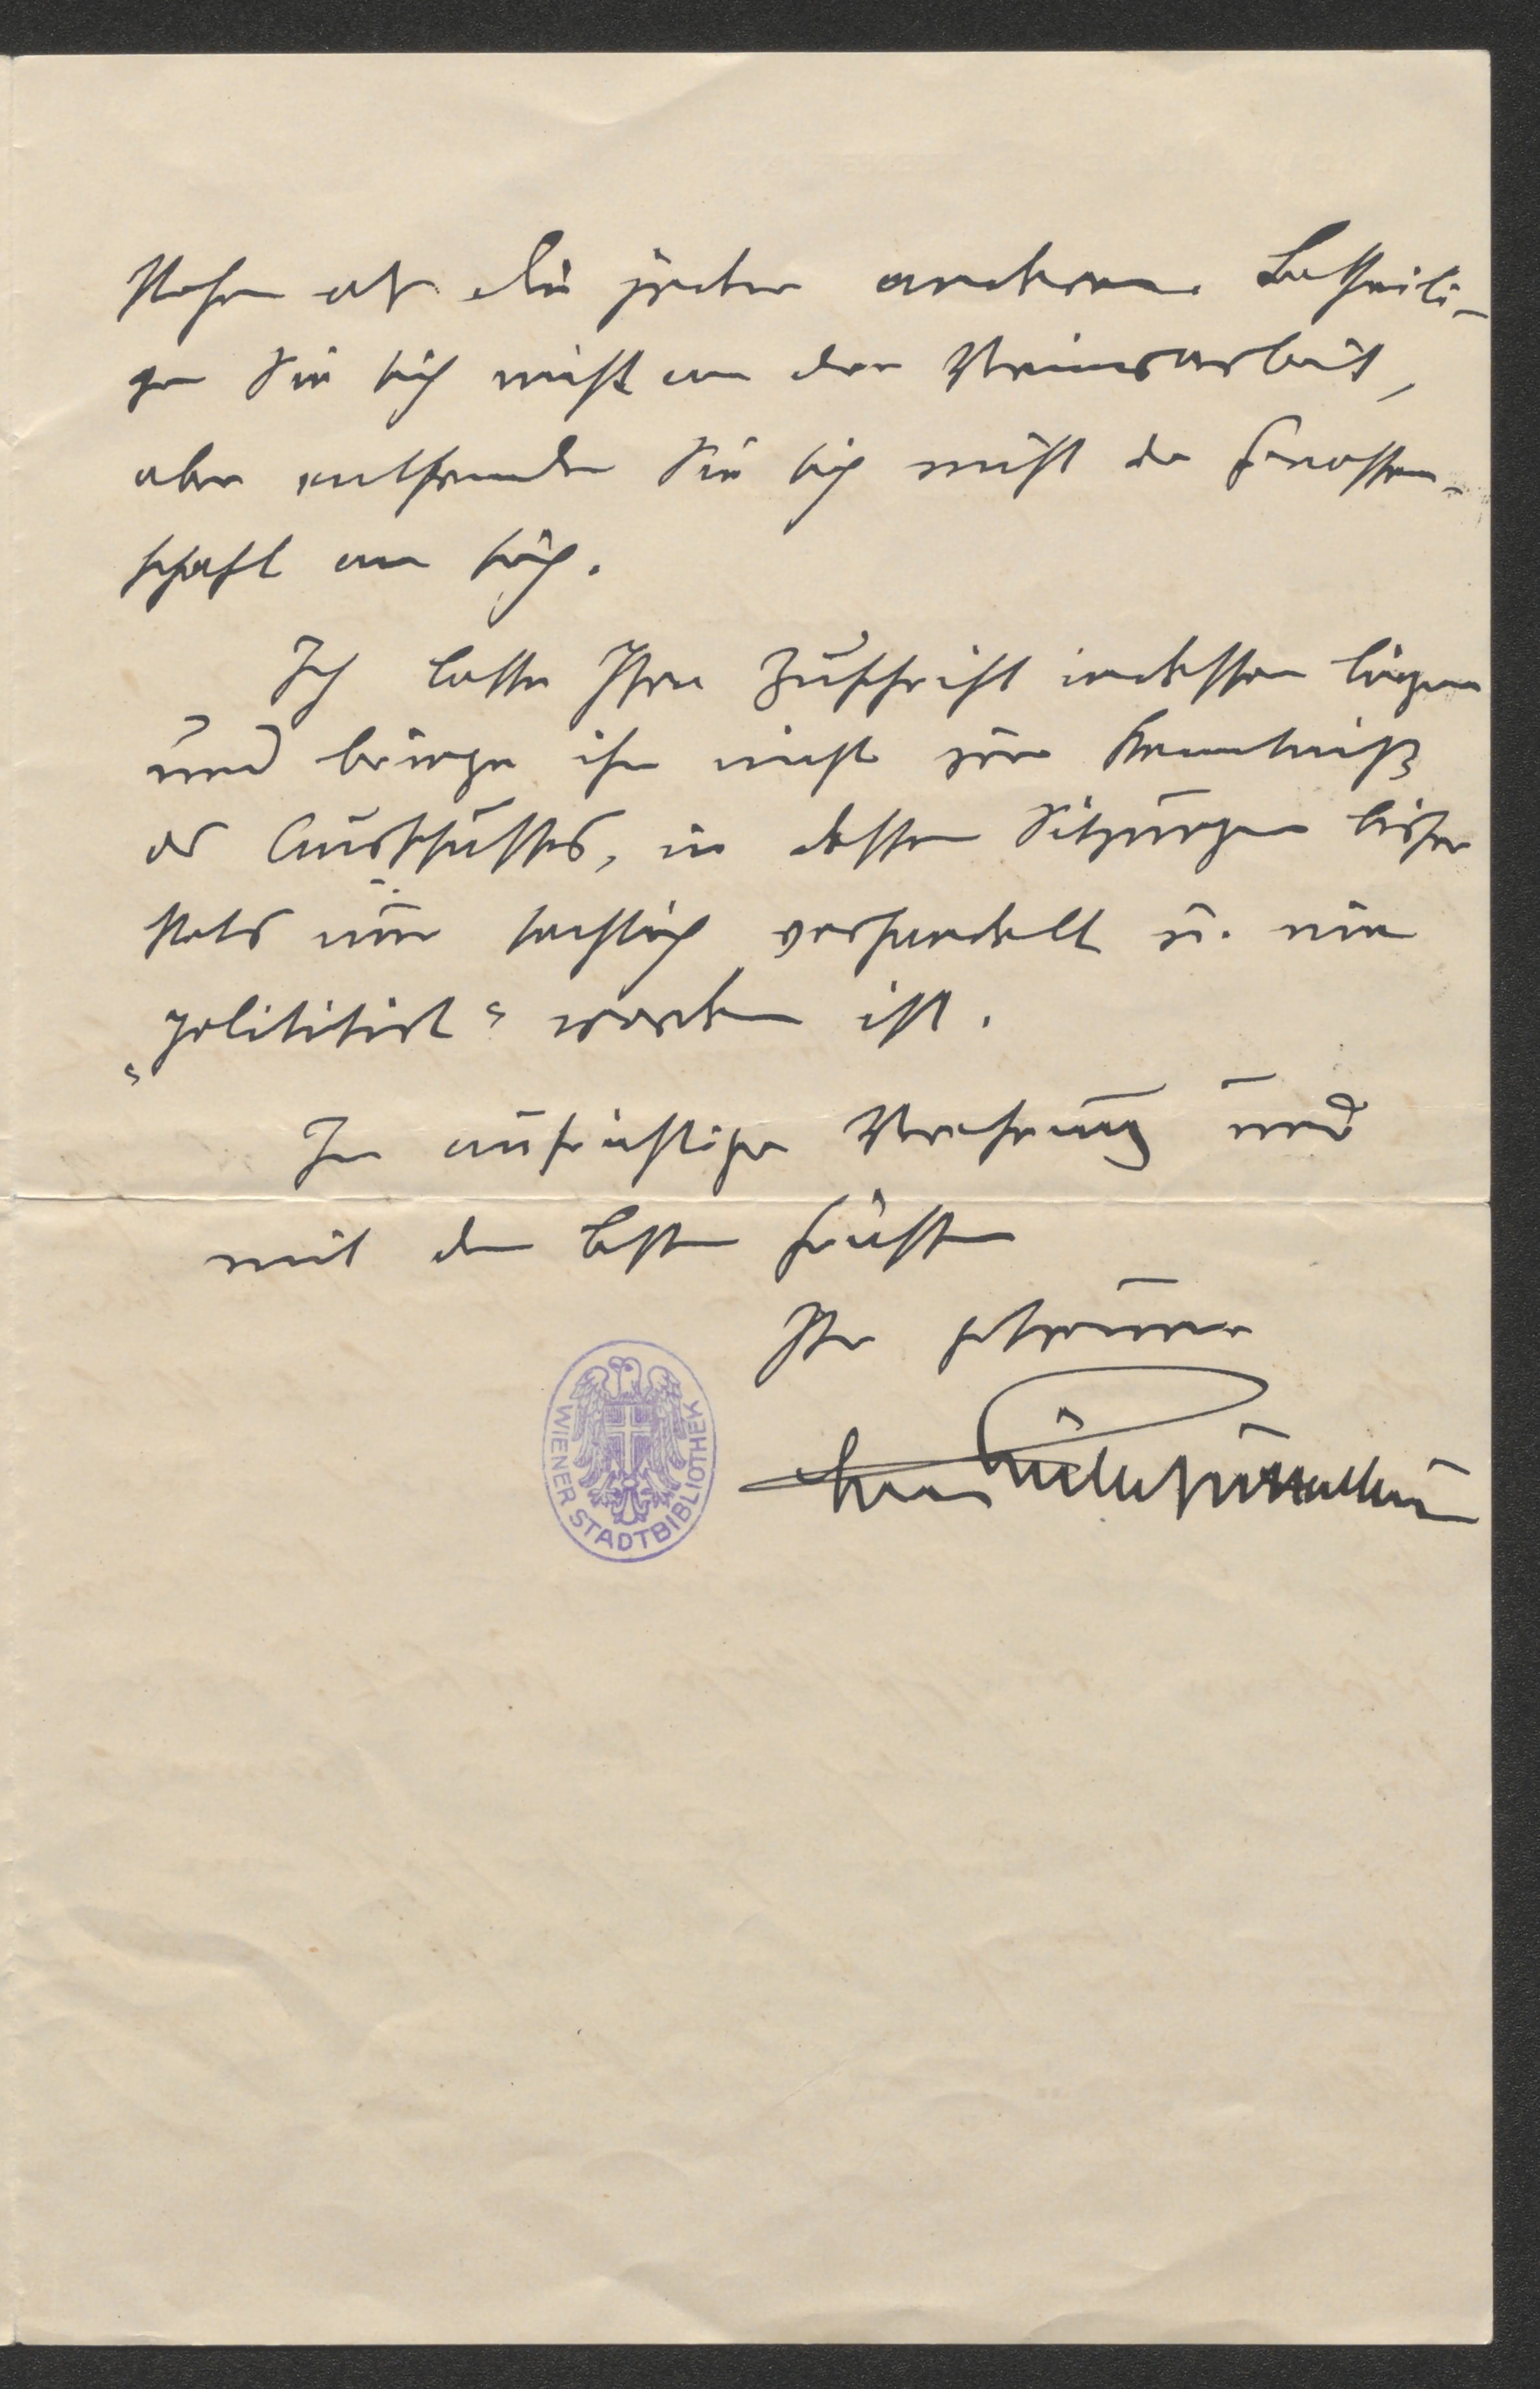 stehen als die jeder anderen. Betheili-
gen Sie sich nicht an der Vereinsarbeit,
aber entfremden Sie sich nicht der Genossen-
schaft an sich.
Ich lasse Ihre Zuschrift indessen liegen
und bringe ihn nicht zur Kenntniß
des Ausschusses, in dessen Sitzungen bisher
stets nur sachlich verhandelt u. nie
„politisirt“ worden ist.
In aufrichtiger Verehrung und
mit den besten Grüßen
Ihr getreuer
WIENER STADTBIBLIOTHEK